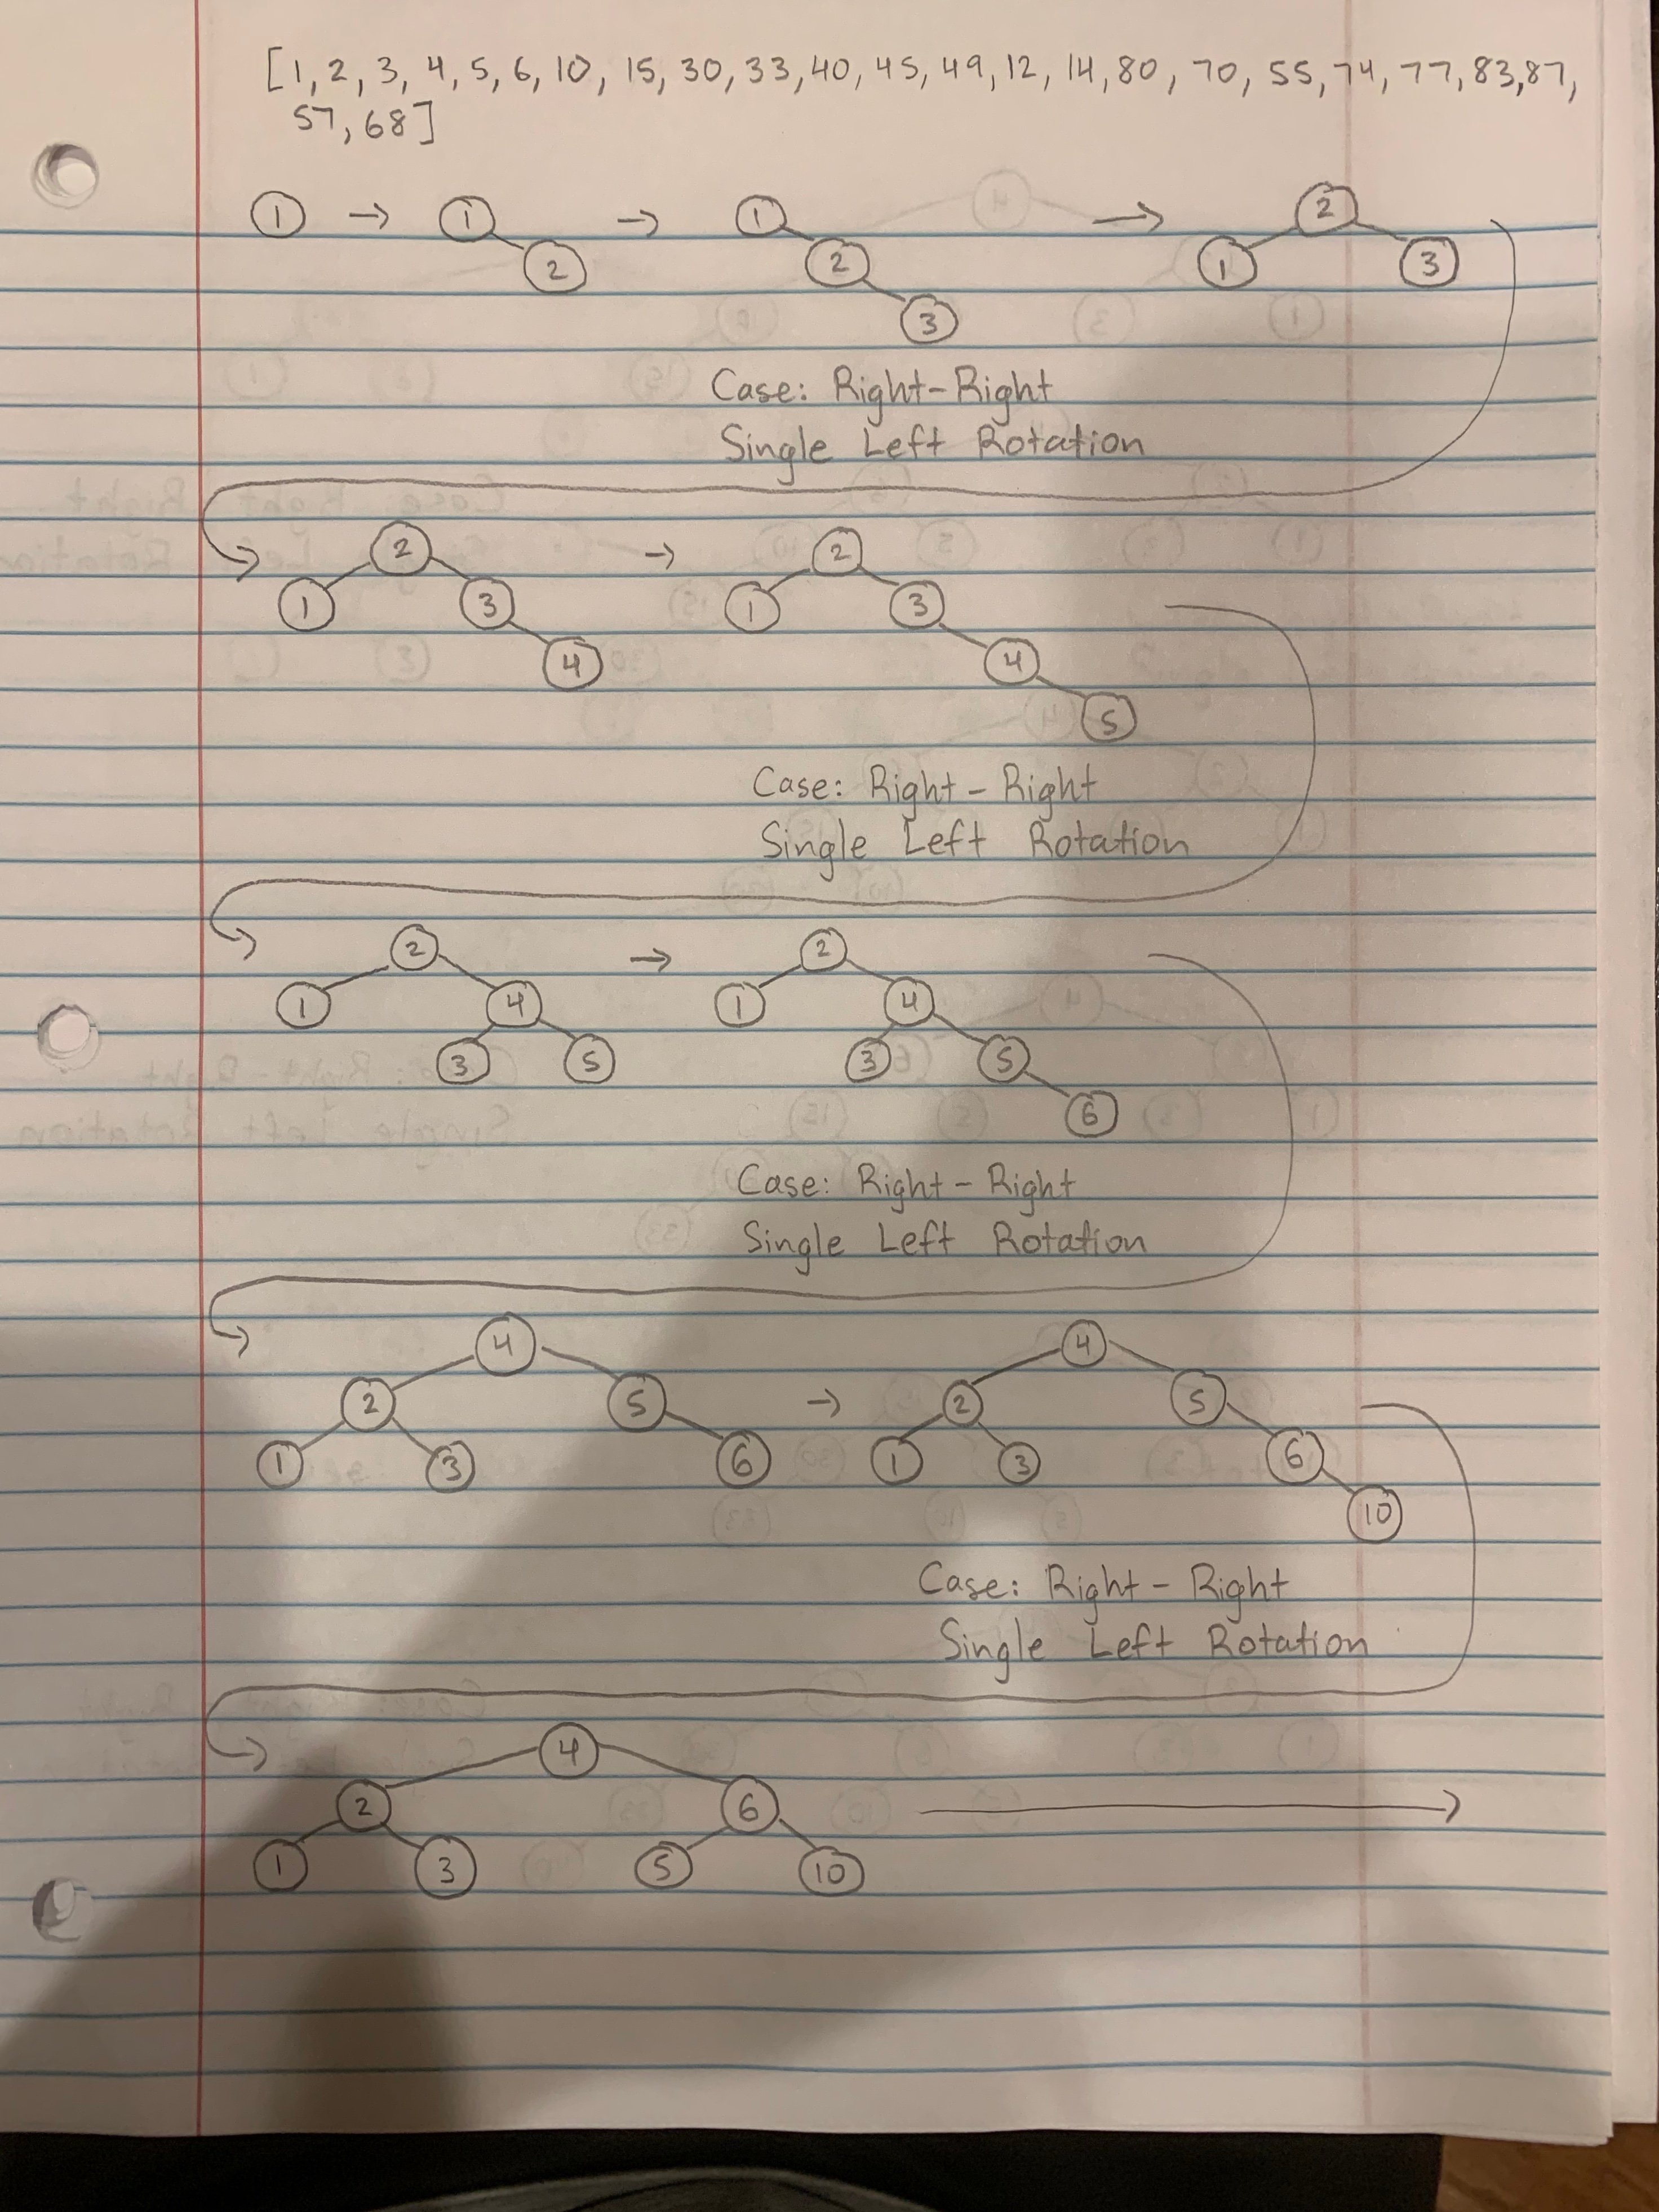 [1, 2, 3, 4, 5, 6, 10, 15, 30, 33, 40, 45, 49, 12, 14, 80, 70, 55, 74, 77, 83, 87,
57, 68]
1 → 1 → 1 → 2
2 2 1 3
3
Case: Right-Right
Single Left Rotation
2 → 2
1 3 1 3
4 4
5
Case: Right - Right
Single Left Rotation
2 → 2
1 4 1 4
3 5 3 5
6
Case: Right - Right
Single Left Rotation
4 4
2 5 → 2 5
1 3 6 1 3 6
10
Case: Right - Right
Single Left Rotation
4
2 6 →
1 3 5 10